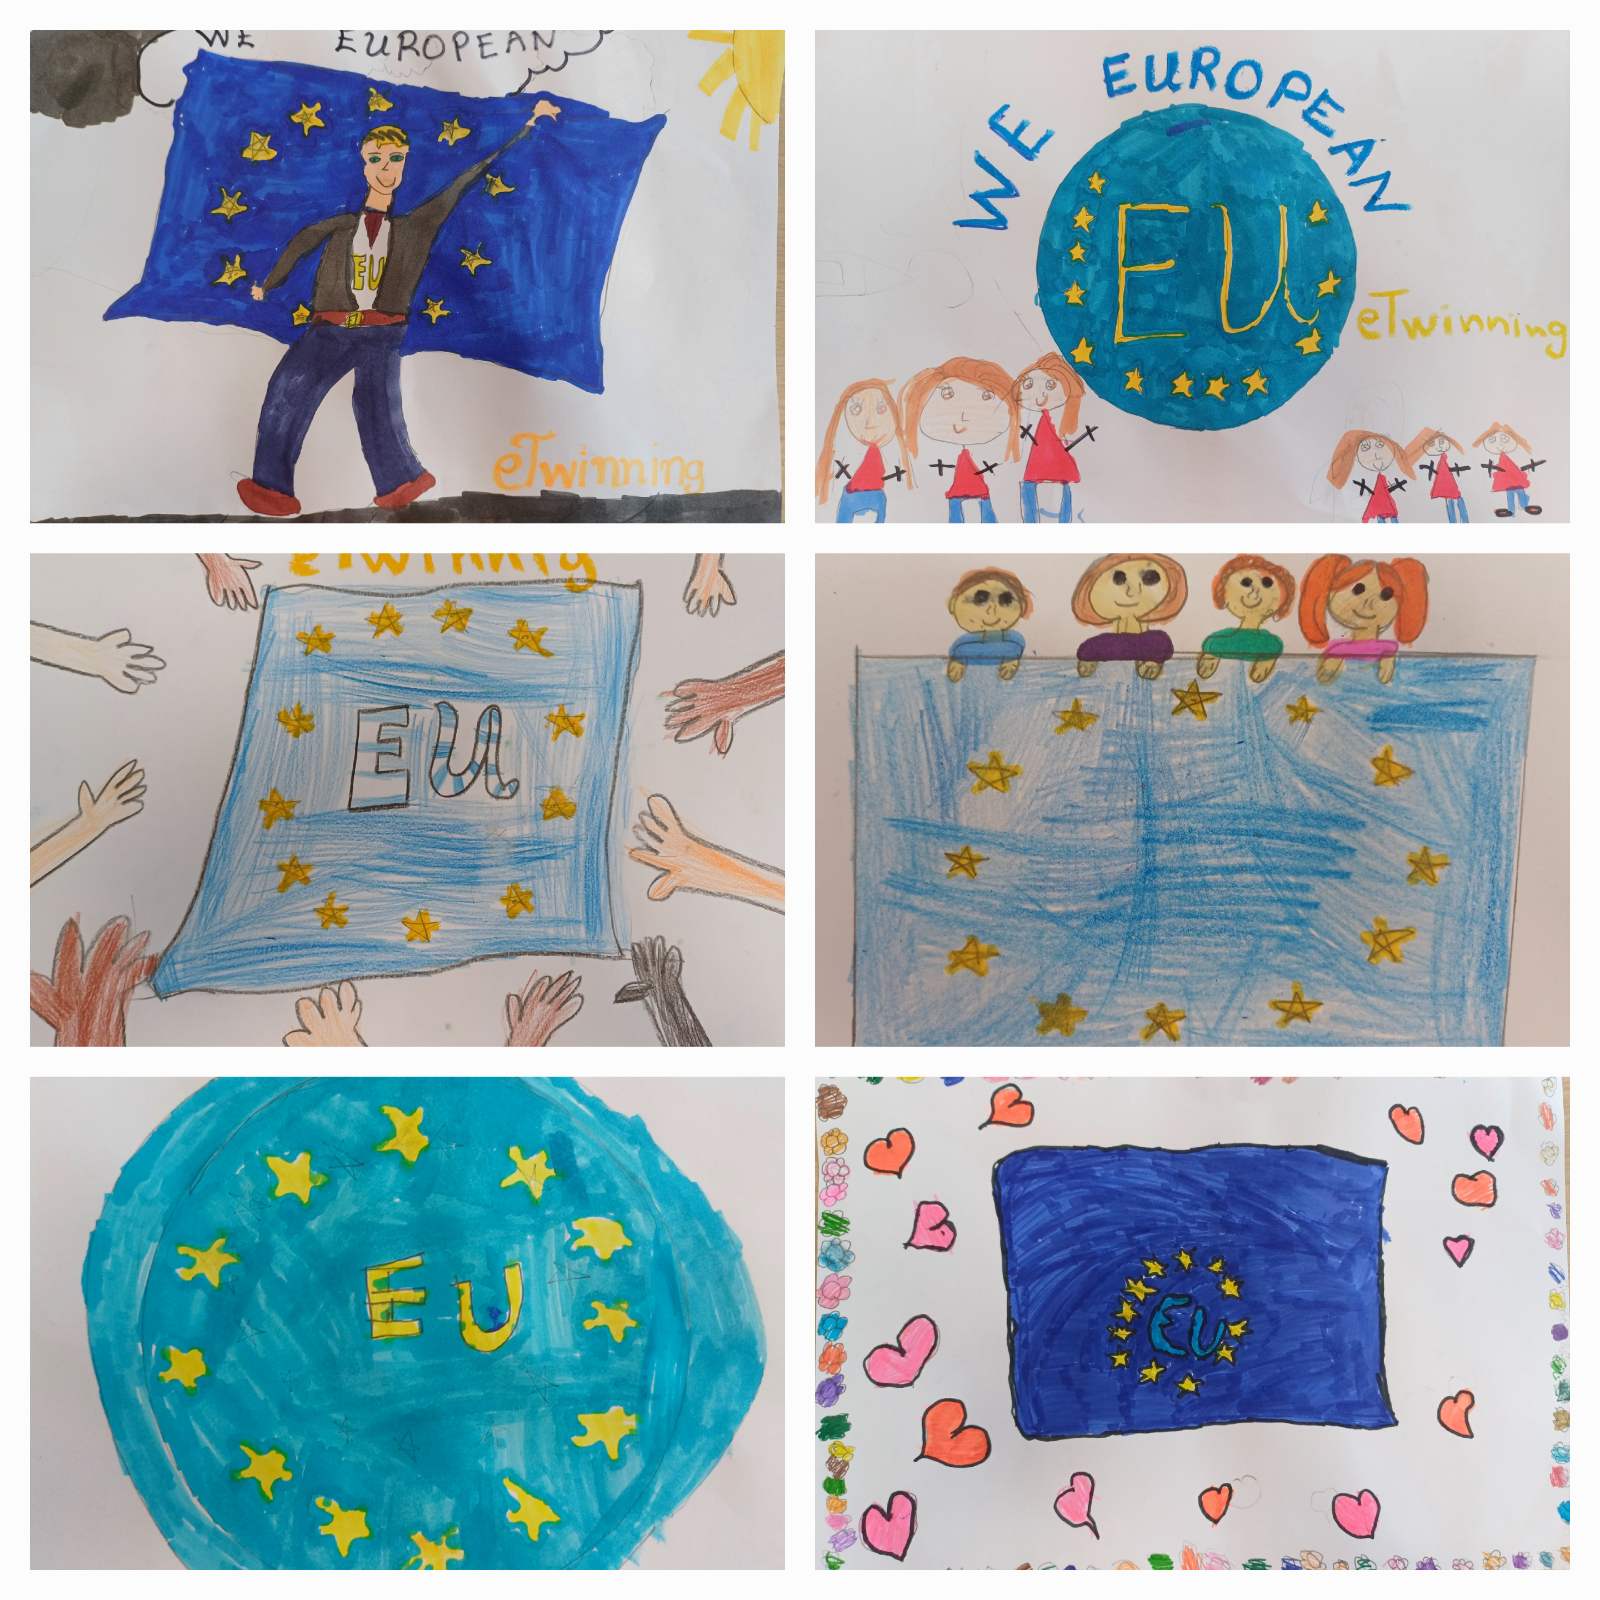 WE EUROPEAN
EU
eTwinning
WE EUROPEAN
EU
eTwinning
eTwinnig
EU
EU
EU